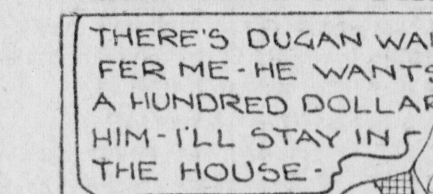 THERE'S DUGAN WAI
FER ME - HE WANTS
A HUNDRED DOLLAR
HIM - I'LL STAY IN
THE HOUSE -